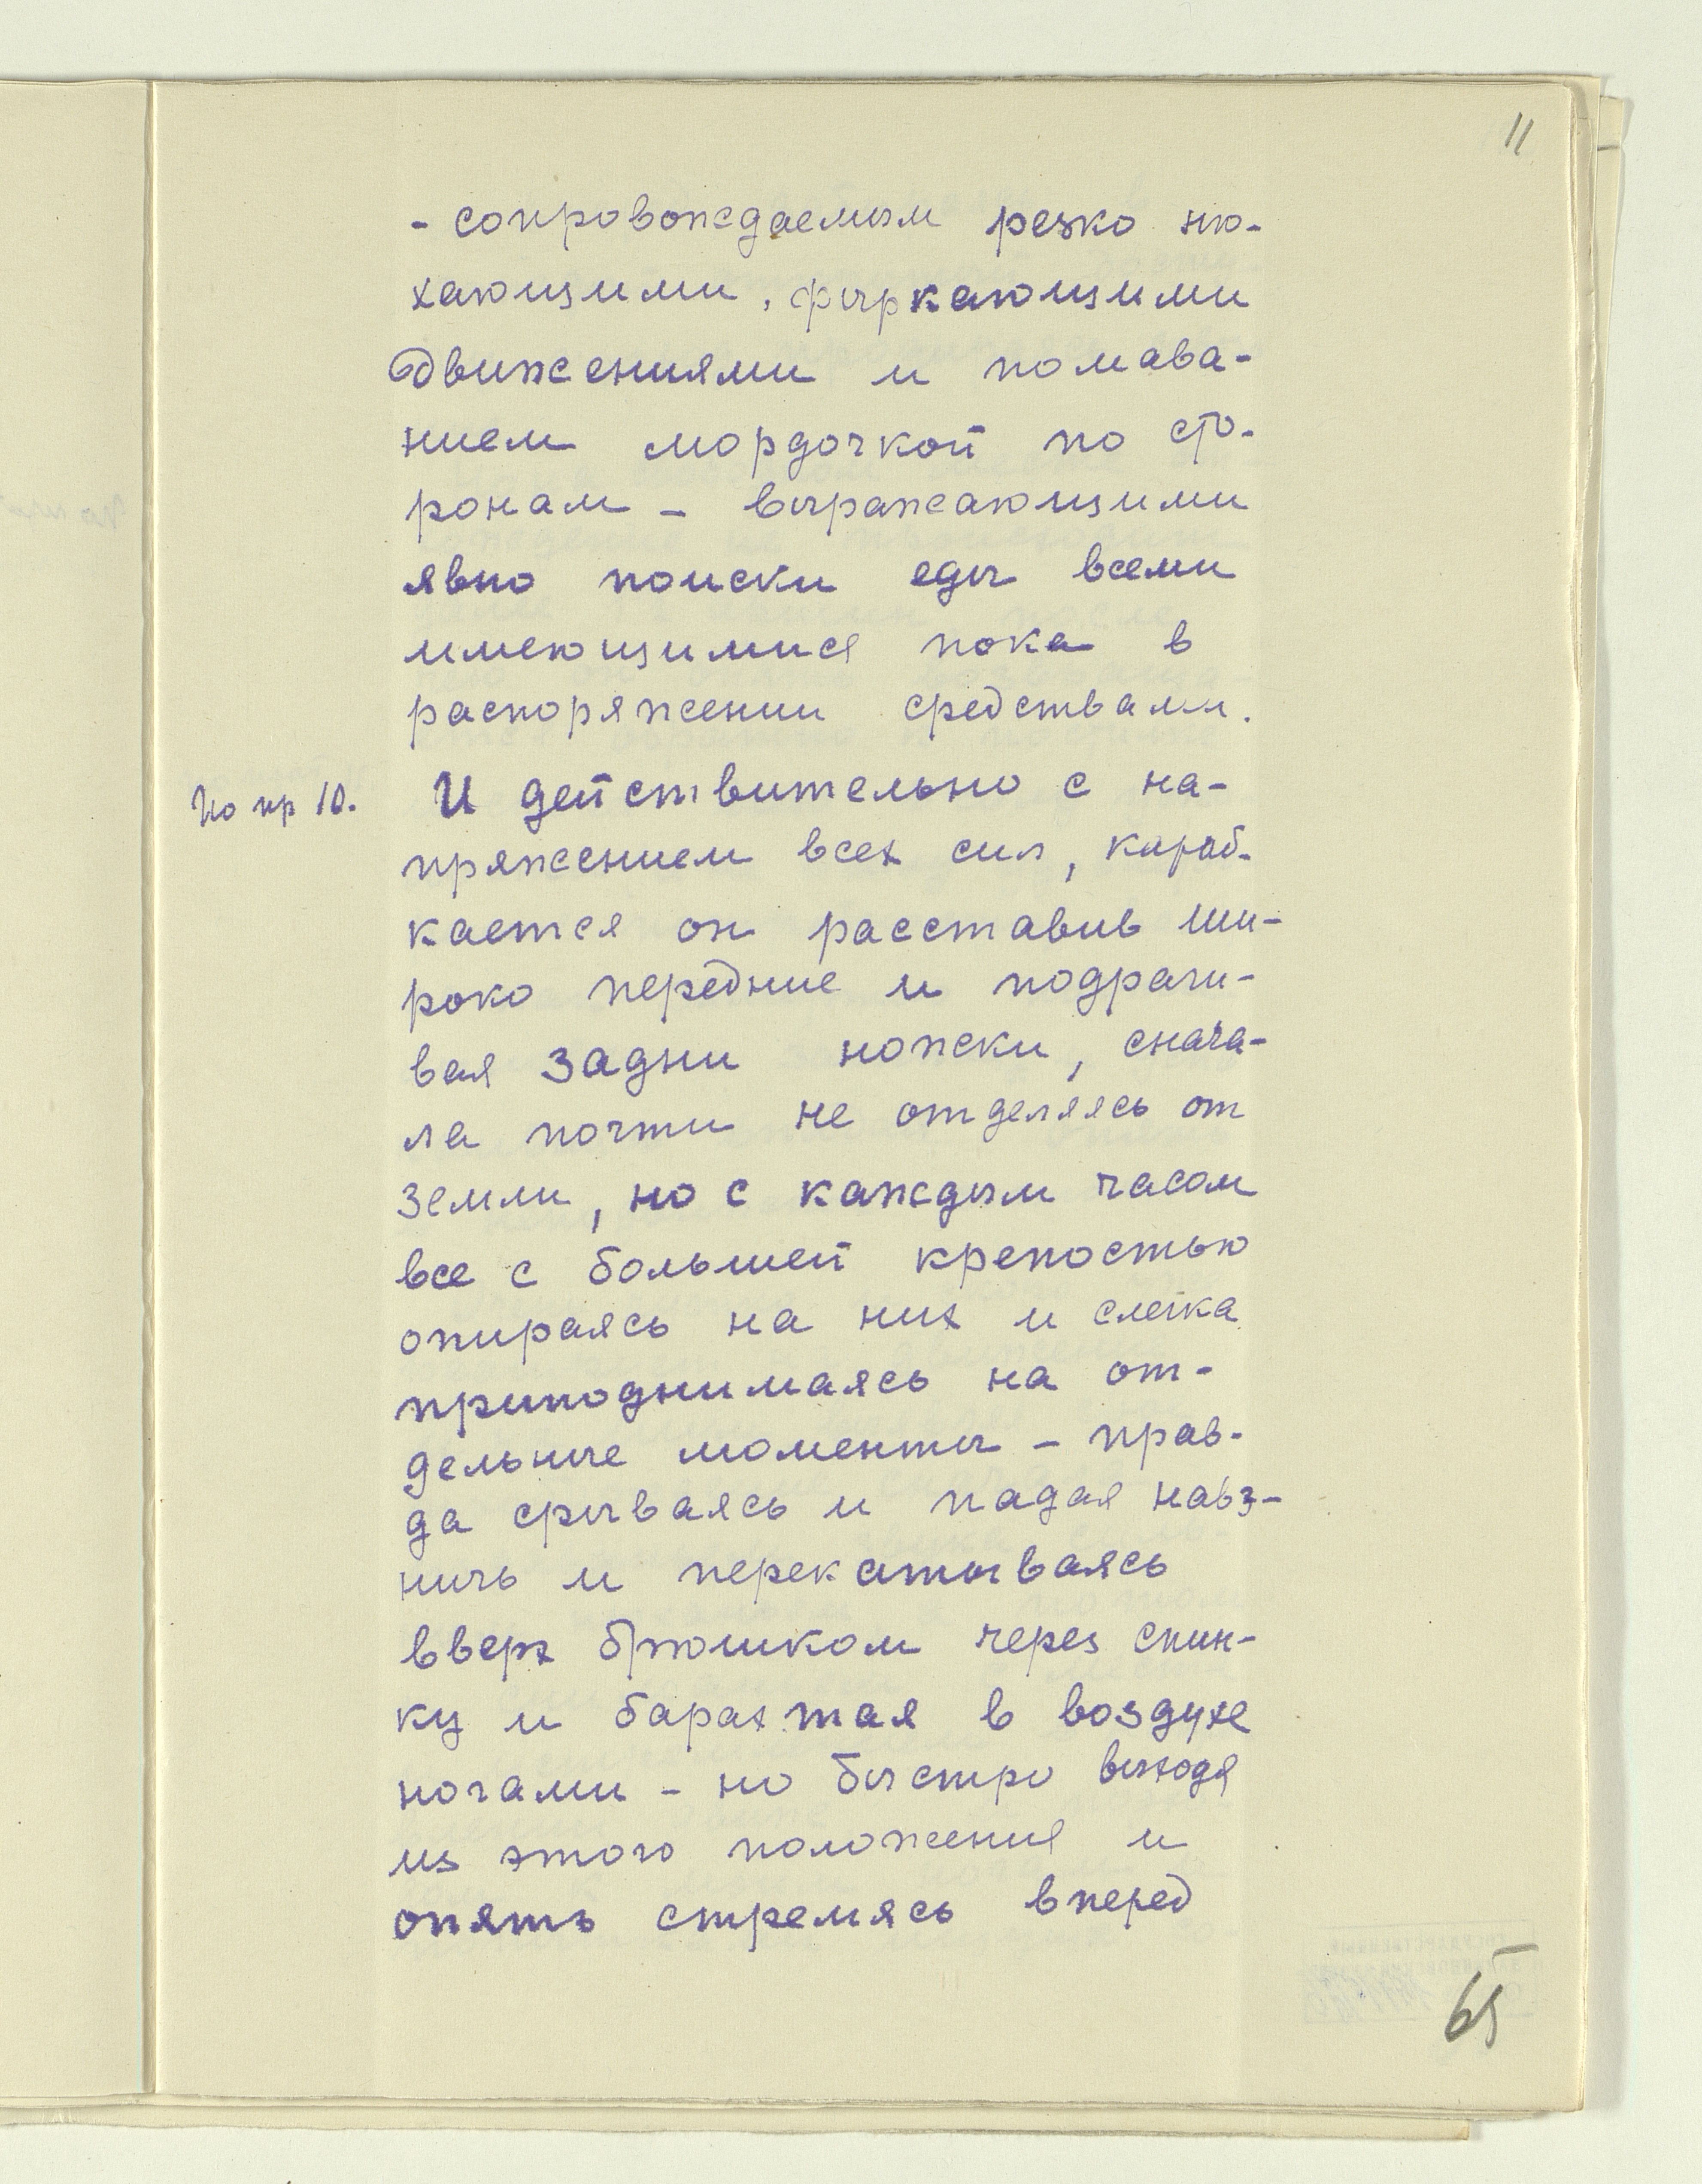 11
- сопровождаемым резко ню-
хающими, фыркающими
движениями и помава-
нием мордочкой по сто-
ронам - выражающими
явно поиски еды всеми
имеющимися пока в
распоряжении средствами.
По пр 10. И действительно с на-
пряжением всех сил, караб-
кается он расставив ши-
роко передние и подрачи-
вая задни ножки, снача-
ла почти не отделяясь от
земли, но с каждым часом
все с большей крепостью
опираясь на них и слегка
приподнимаясь на от-
дельные моменты - прав-
да срываясь и падая навз-
ничь и перекатываясь
вверх брюшком через спин-
ку и барахтая в воздухе
ногами - но быстро выходя
из этого положения и
опять стремясь вперед
65